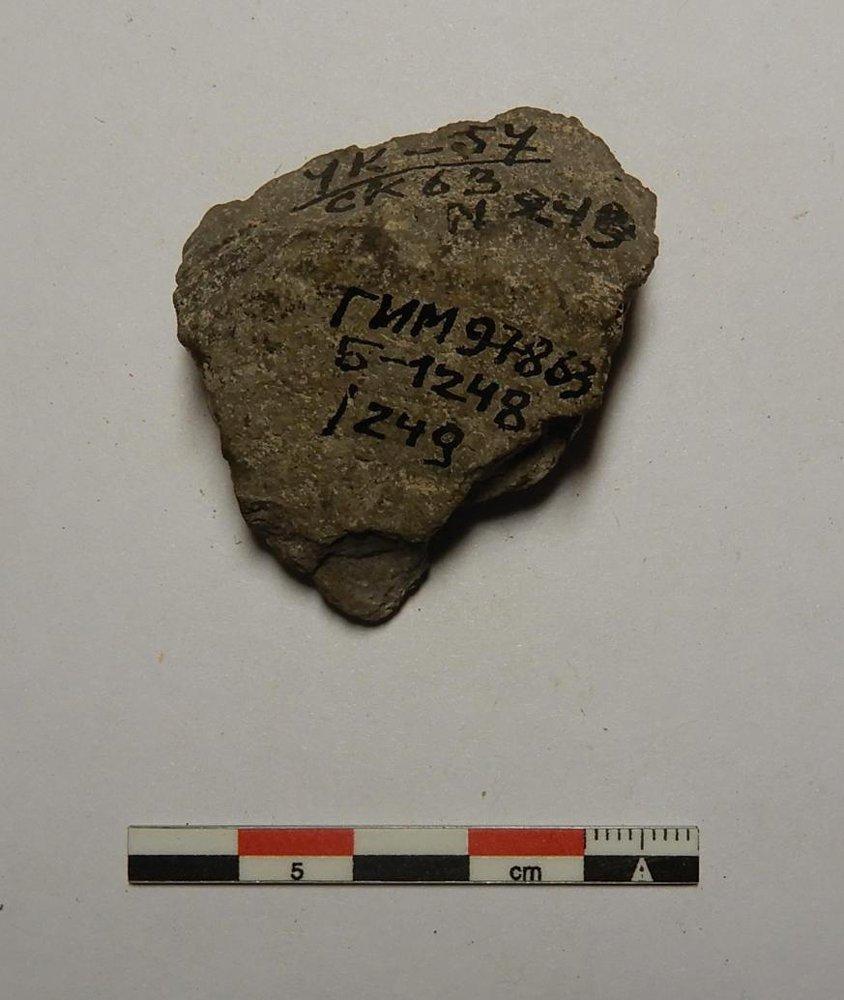 УК-57
СК 63
N 249
ГИМ 97863
Б-1248
1249
5 cm